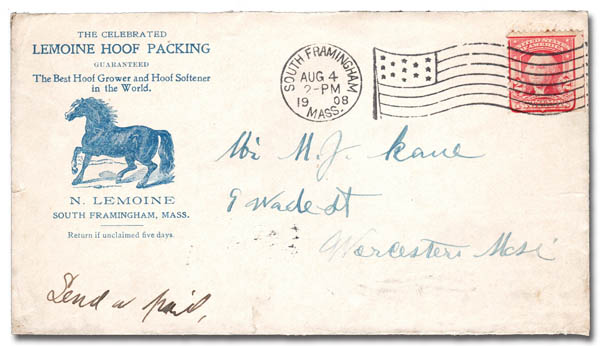 THE CELEBRATED
LEMOINE HOOF PACKING
GUARANTEED
The Best Hoof Grower and Hoof Softener
in the World.
N. LEMOINE
SOUTH FRAMINGHAM, MASS.
Return if unclaimed five days.
SOUTH FRAMINGHAM
AUG 4
2-PM
19 08
MASS.
UNITED STATES
AMERICA
M. J. Kane
9 Wade St
Worcester Mass
Send a pail,